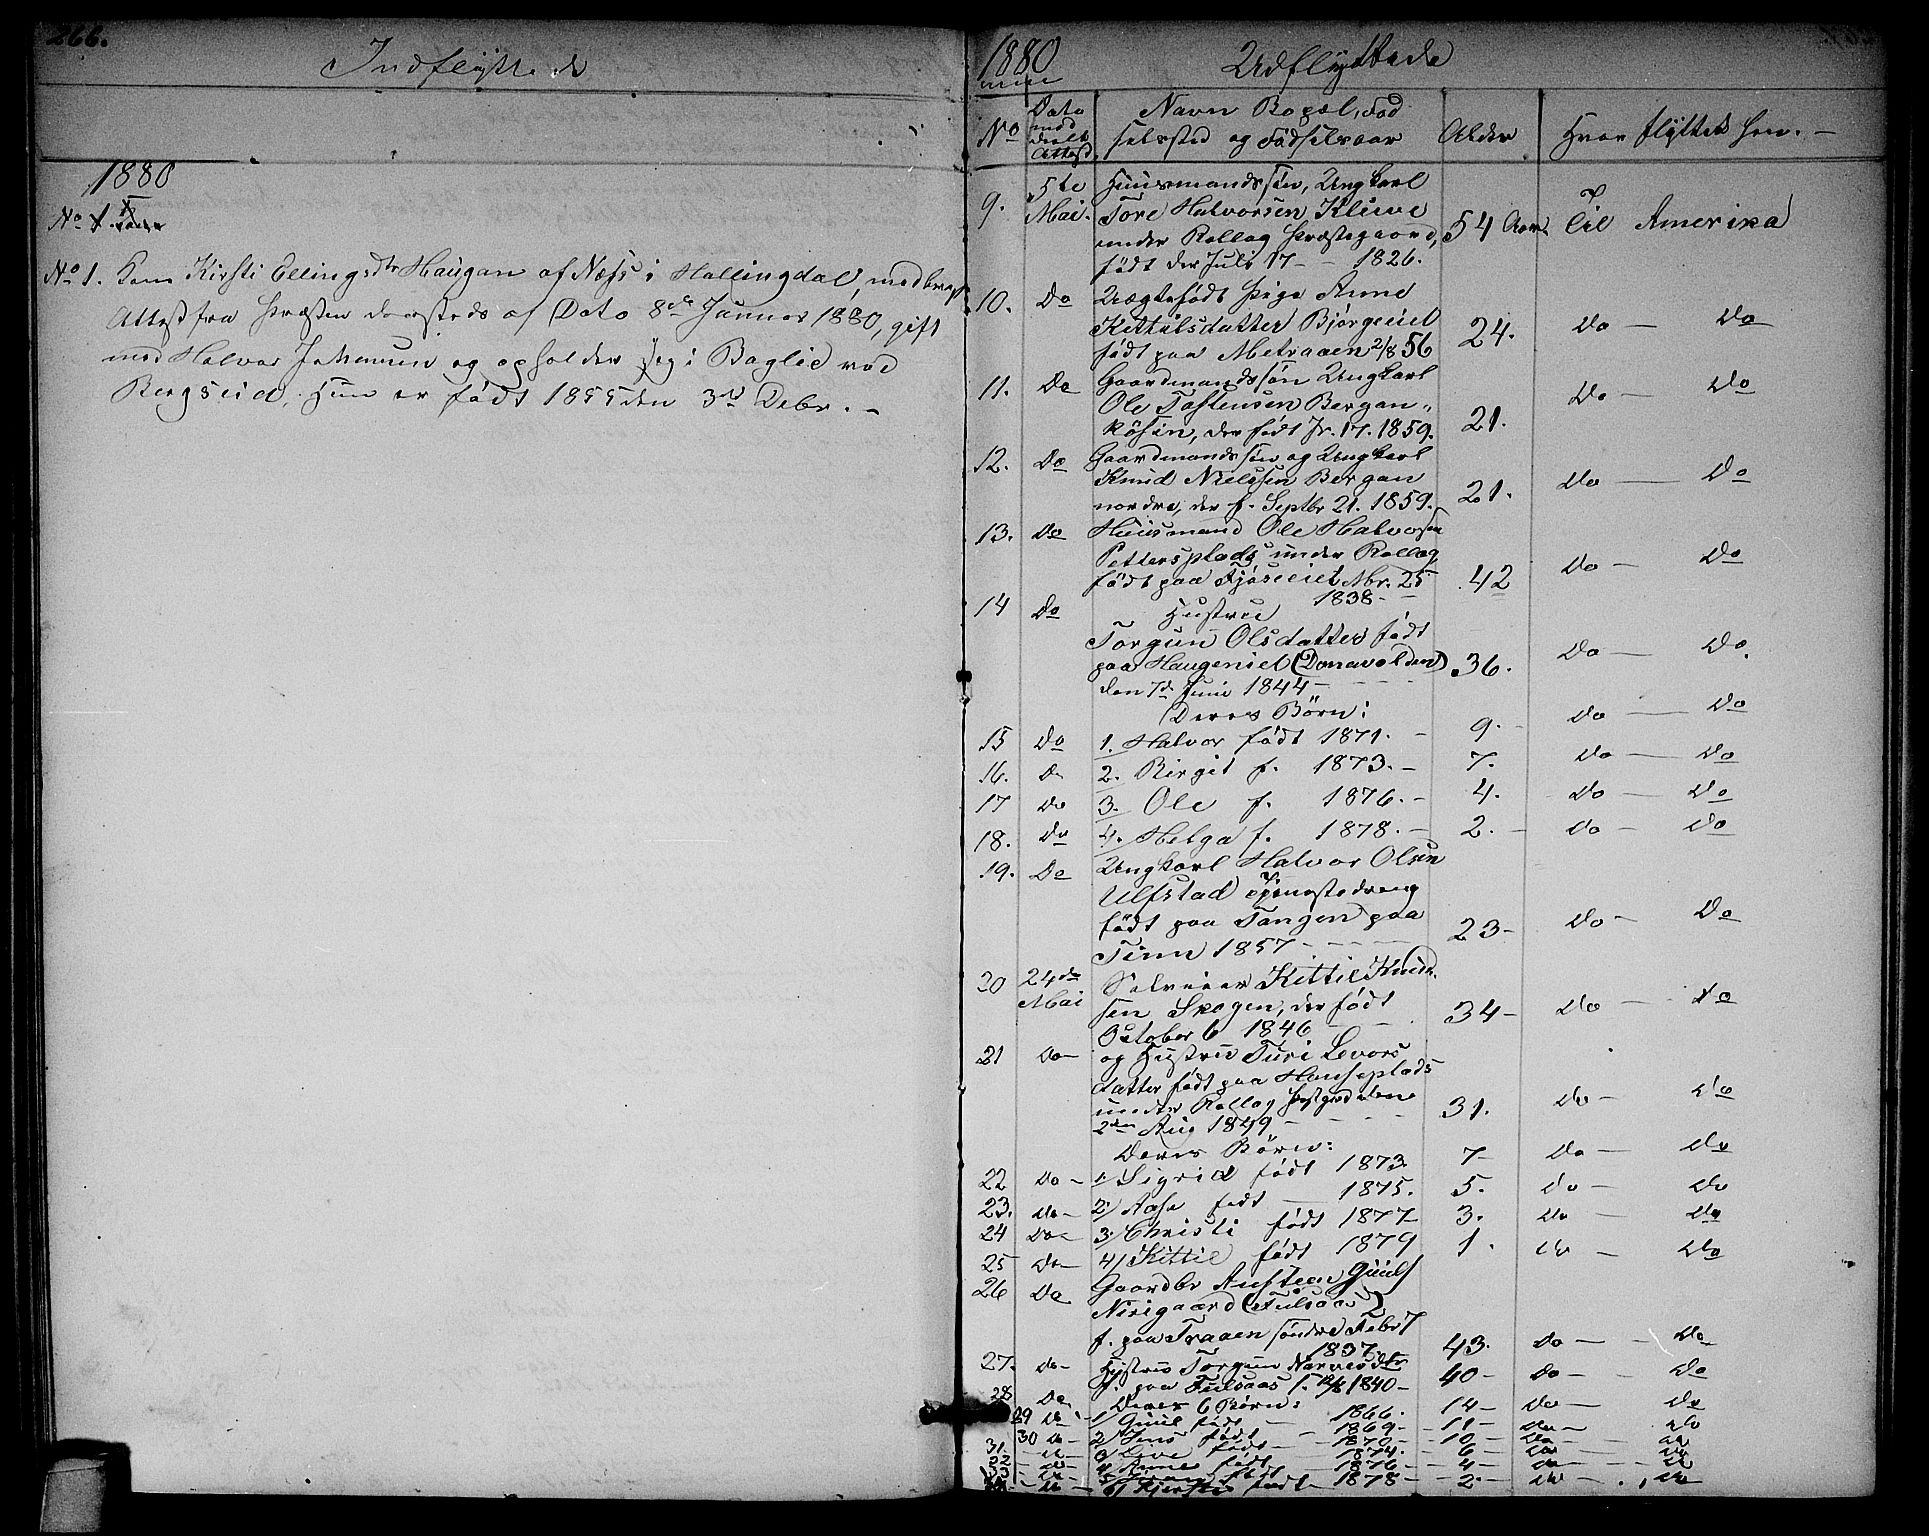 266.
Indflyttede
1880
No 1
No 1. Kom Kirsti Ellingsdtr Haugan af Næss i Hallingdal, medbragt
Attest fra Præsten dersteds af Dato 8de Januar 1880, gift
med Halvor Johannesen og opholder sig i Baglie ved
Bergseid. Hun er født 1855 den 3die Debr. -
1880
Udflyttede
No
Dato med deelt Attest
Navn Bopæl, Fød
selssted og Fødselsaar
Alder
Hvor flyttet hen. -
9. 5te Mai. Huusmandssøn, Ungkarl
Tore Halvorsen Kluve
under Rollag Præstegaard, 54 Aar. Til Amerika
født der Juli 17 - - 1826.
10. Do Uægtefødt Pige Anne
Kittilsdatter Bjørgeiiet 24. Do - Do
født paa Metraaen 2/8 56
11. Do Gaardmandssøn Ungkarl
Ole Tostensen Bergan- 21. Do - Do
, der født Jr. 17. 1859.
12. Do Gaardmandssøn og Ungkarl
Knud Nielssen Bergan
nordre, der f. Septbr 21. 1859. 21. Do - Do
13. Do Huusmand Ole Halvorsen
Pettersplads, under Rollag
født paa Fjøseiet Nbr. 25 42 Do - Do
1838 -
14 Do Hustru
Torgun Olsdatter født
paa Haugeniet (Donavolden) 36. Do - Do.
den 7de Juni 1844 -
Deres Børn:
15 Do 1. Halvor født 1871. - 9. - Do - Do
16. Do 2. Birgit f. 1873. - 7. Do - Do
17 Do 3. Ole f. 1876. - 4. Do - Do
18. Do 4. Helga f. 1878. - 2. - Do - Do
19. Do Ungkarl Halvor Olsen
Ulfstad Tjenestedreng
født paa Tangen paa 23 - Do - Do
Tinn 1857 -
20 24de Mai Selveier Kittil Knud
sen Skogen, der født 34 - Do - Do
October 6 1846 -
21 Do - og Hustru Turi Levors
datter født paa Hanseplads
under Rollag Prstgrd dene 31. Do - Do
2den Aug 1849 -
Deres Børn:
22 Do - 1/ Sigrid født 1873 7 - Do - Do
23. Do - 2/ Aase født - 1875. 5. Do - Do
24 Do - 3/ Christi født 1877 3. Do - Do
25 Do - 4/ Kittil født 1879 1. Do - Do
26 Do Gaardbr Austeen Guuls
Nirigaard (Fulsaas)
f. paa Traaen søndre Febr 7 43. Do - Do
1837.
27. Do - Hustru Torgun Narvesdtr
f. paa Fulsaas f. 1840 - 40 - Do - Do
28 Do. Deres 6 Børn:
29 Do - 1/ Guul født - 1866. 14 - Do - Do
30 Do - 2/ Jens født - 1869 - 11 - Do - Do
31. Do - 3/ Live født - 1870 - 10 - Do - Do
32 - Do - 4/ Anne født - 1874. - 6 - Do - Do
33 - Do - 5/ født - 1876 - 4 - Do - Do
Do - 6/ født - 1878 - 2 - Do - Do